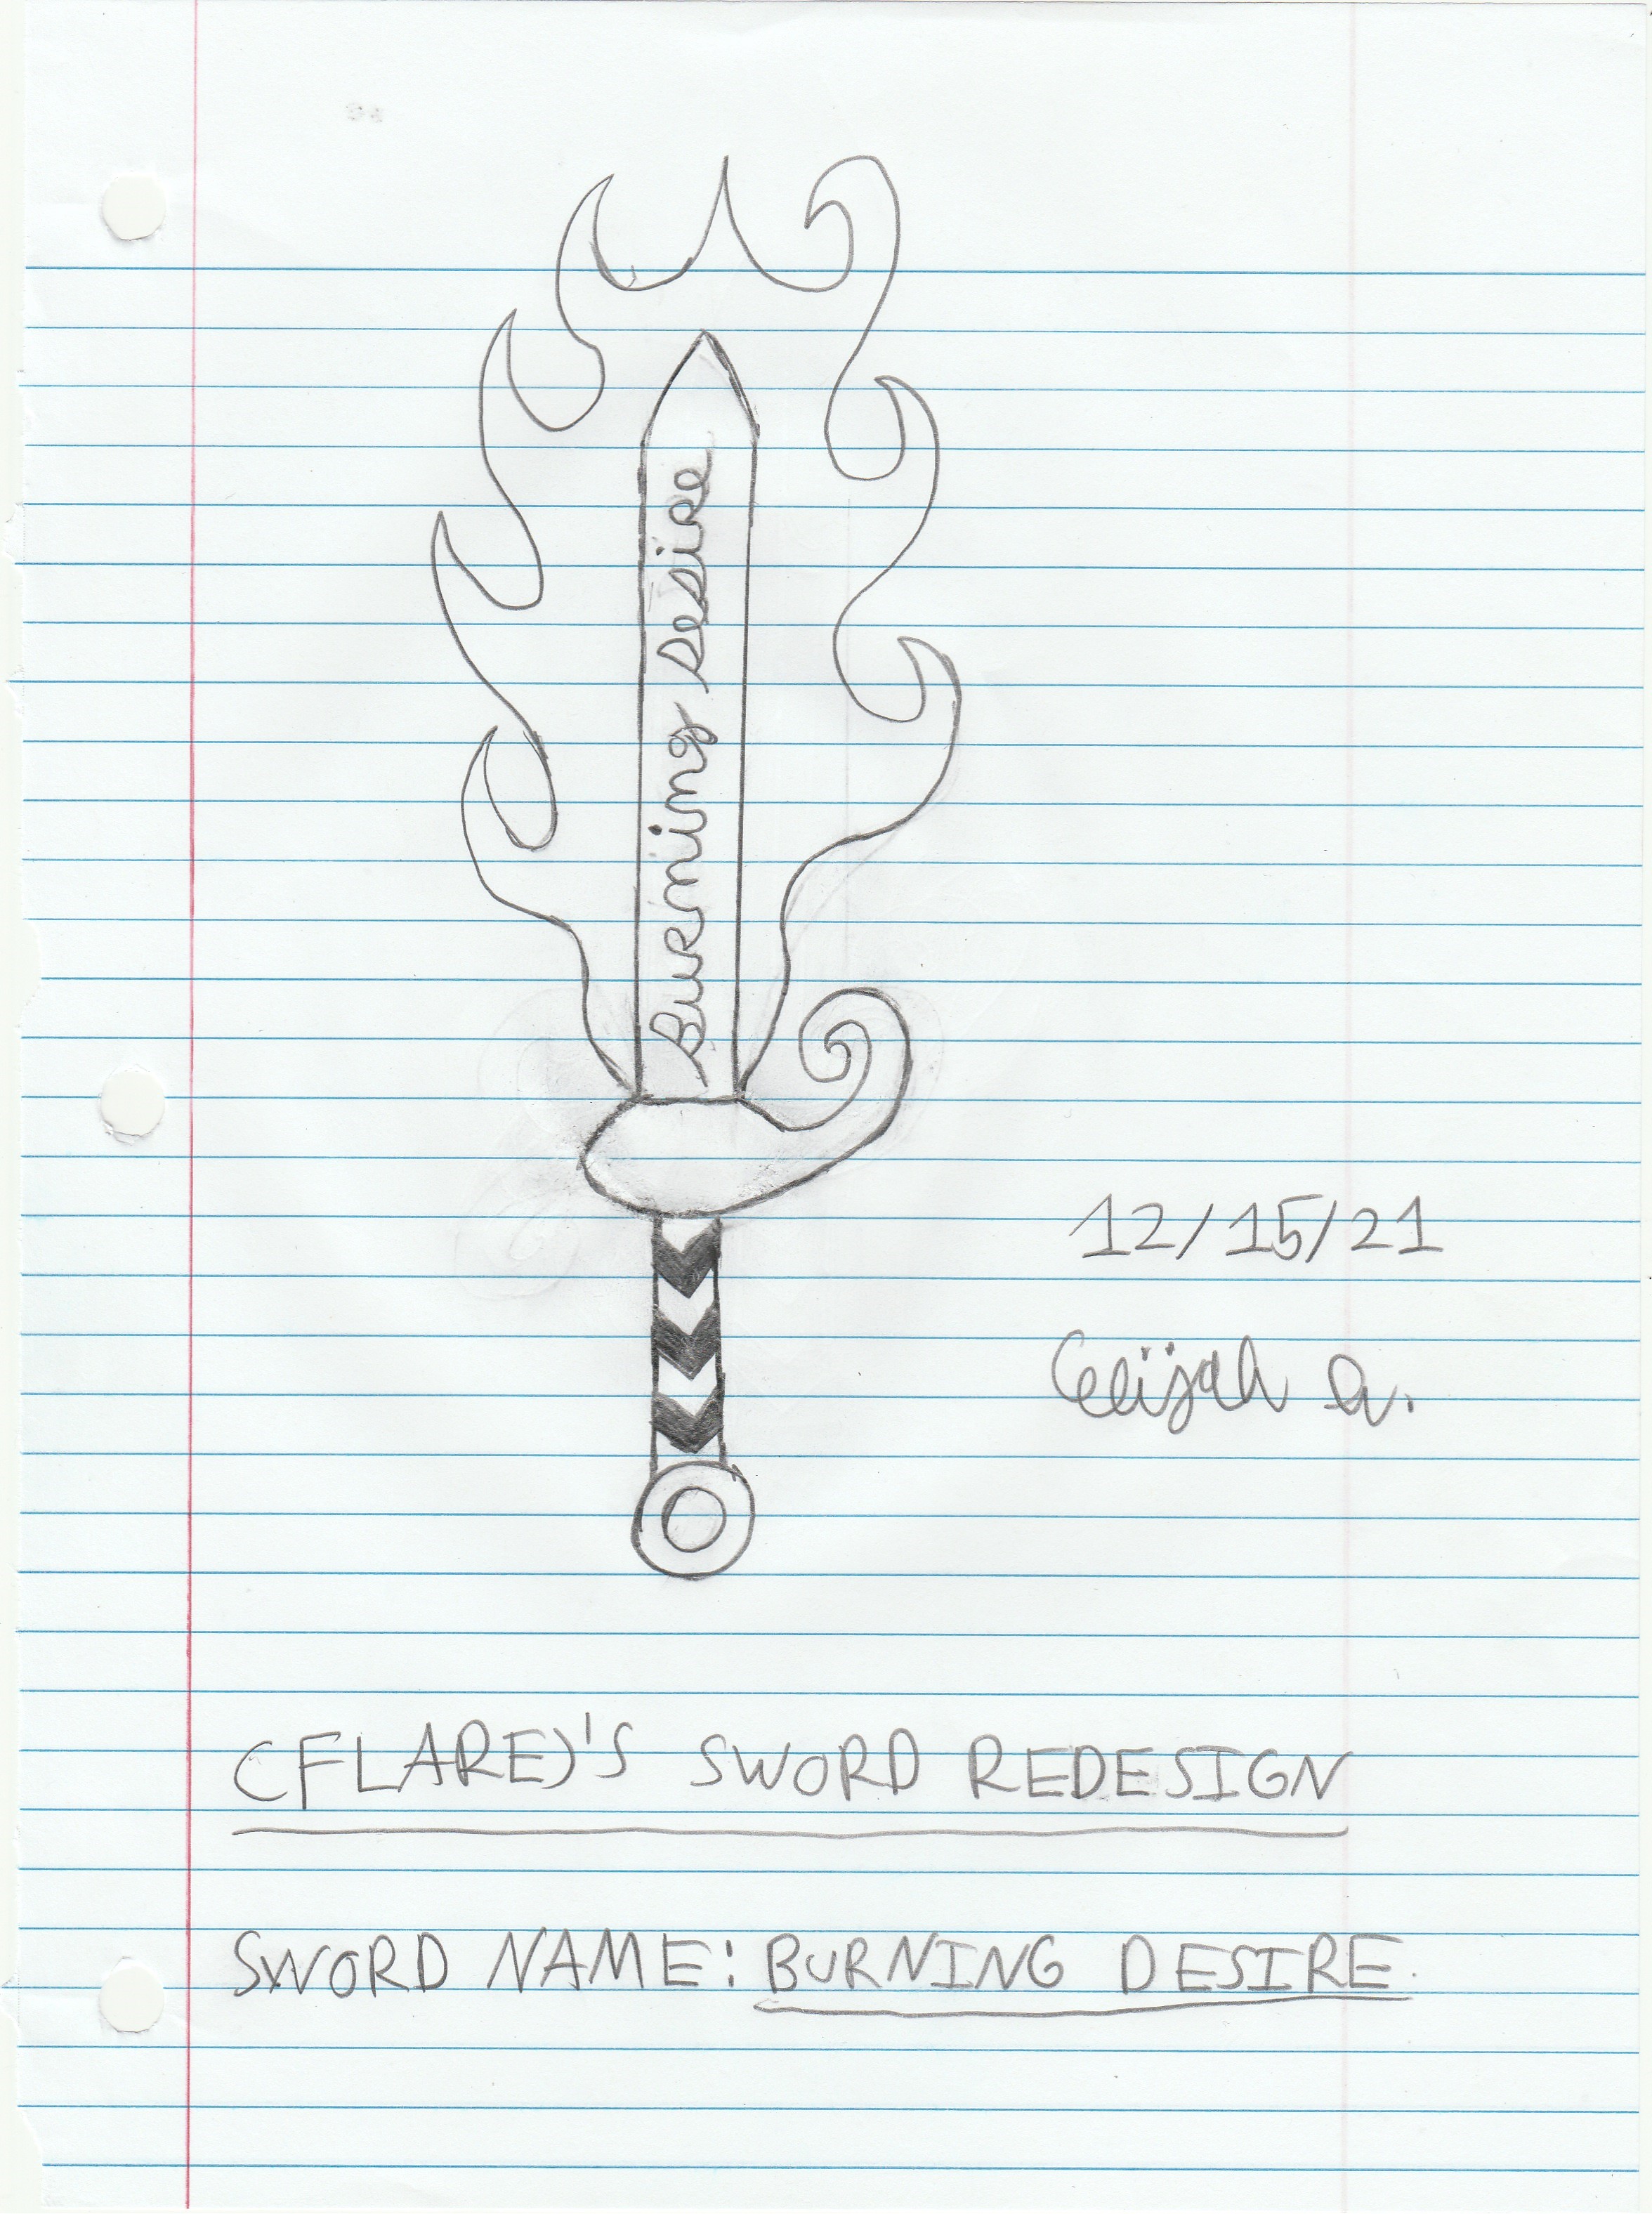 Burning Desire
12/15/21
Elijah A.
(FLARE)'S SWORD REDESIGN
SWORD NAME: BURNING DESIRE.